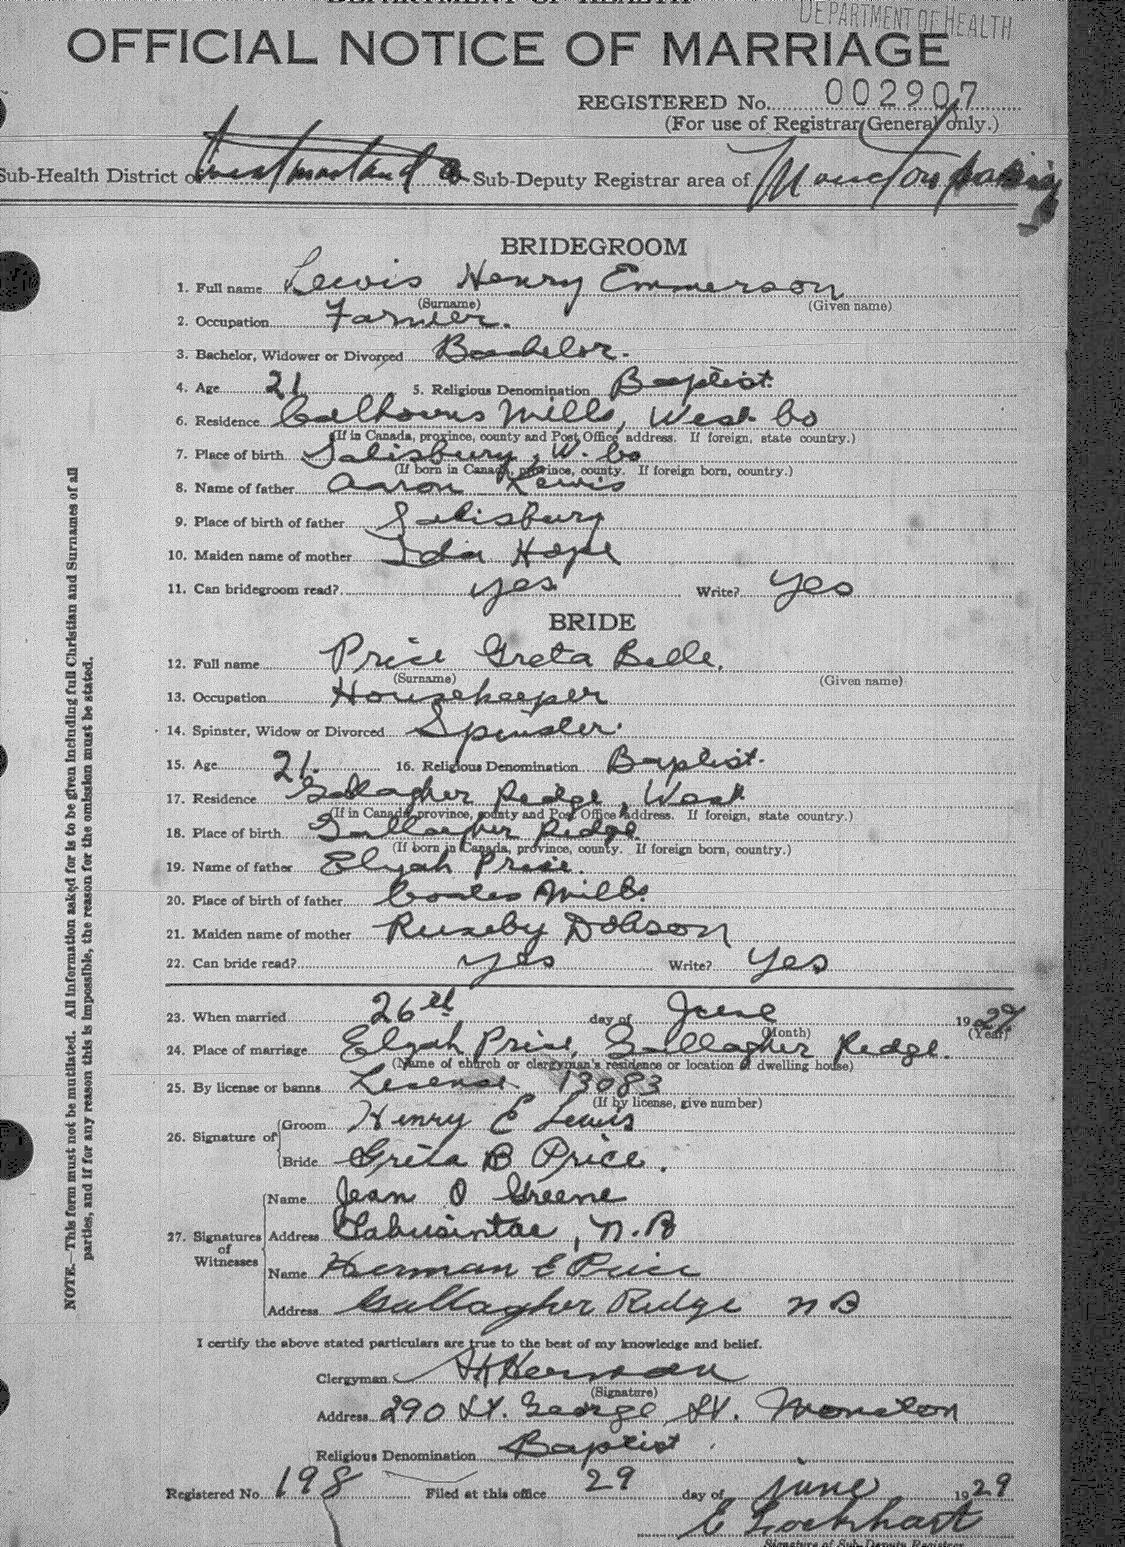 DEPARTMENT OF HEALTH
DEPARTMENT OF HEALTH
OFFICIAL NOTICE OF MARRIAGE
REGISTERED No. 002907
(For use of Registrar General only.)
Sub-Health District of Westmorland Sub-Deputy Registrar area of Moncton Parish
BRIDEGROOM
1. Full name Lewis Henry Emmerson
(Surname) (Given name)
2. Occupation Farmer.
3. Bachelor, Widower or Divorced Bachelor.
4. Age 21 5. Religious Denomination Baptist.
6. Residence Calhouns Mills, West Co
(If in Canada, province, county and Post Office address. If foreign, state country.)
7. Place of birth Salisbury, W. Co
(If born in Canada, province, county. If foreign born, country.)
8. Name of father Aaron Lewis
9. Place of birth of father Salisbury
10. Maiden name of mother Ida Hope
11. Can bridegroom read? yes Write? yes
BRIDE
12. Full name Price Greta Belle.
(Surname) (Given name)
13. Occupation Housekeeper
14. Spinster, Widow or Divorced Spinster.
15. Age 21. 16. Religious Denomination Baptist.
17. Residence Gallagher Redge, West
(If in Canada, province, county and Post Office address. If foreign, state country.)
18. Place of birth Gallagher Redge
(If born in Canada, province, county. If foreign born, country.)
19. Name of father Elijah Price.
20. Place of birth of father Coates Mills
21. Maiden name of mother Dobson
22. Can bride read? yes Write? yes
23. When married 26th day of June 1929
(Month) (Year)
24. Place of marriage Elijah Price, Gallagher Redge.
(Name of church or clergyman's residence or location of dwelling house)
25. By license or banns License 13083
(If by license, give number)
26. Signature of Groom Henry E Lewis
Bride Greta B Price.
27. Signatures of Witnesses Name Jean O Greene
Address Tabusintac, N.B
Name Herman E Price
Address Gallagher Ridge N B
NOTE.—This form must not be mutilated. All information asked for is to be given including full Christian and Surnames of all
parties, and if for any reason this is impossible, the reason for the omission must be stated.
I certify the above stated particulars are true to the best of my knowledge and belief.
Clergyman
(Signature)
Address 290 St. George St. Moncton
Religious Denomination Baptist
Registered No. 198 Filed at this office 29 day of June 1929
E Lockhart
Signature of Sub-Deputy Registrar